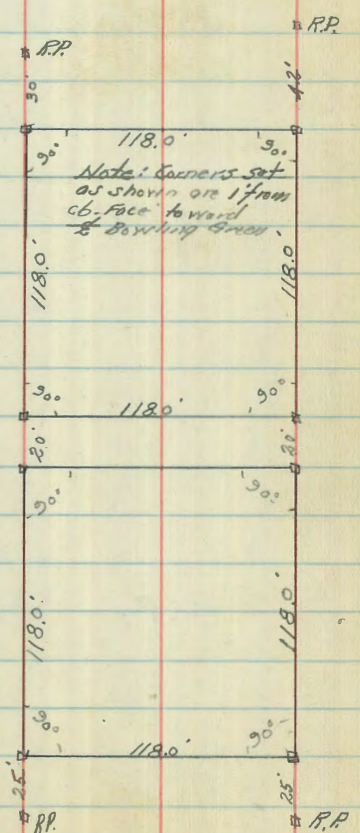 R.P.
R.P.
30'
42'
118.0'
90° 90°
Note: Corners set
as shown are 1' from
cb. Face toward
℄ Bowling Green
118.0' 118.0'
90° 90°
118.0'
20' 20'
90° 90°
118.0' 118.0'
90° 90°
118.0'
25' 25'
R.P. R.P.